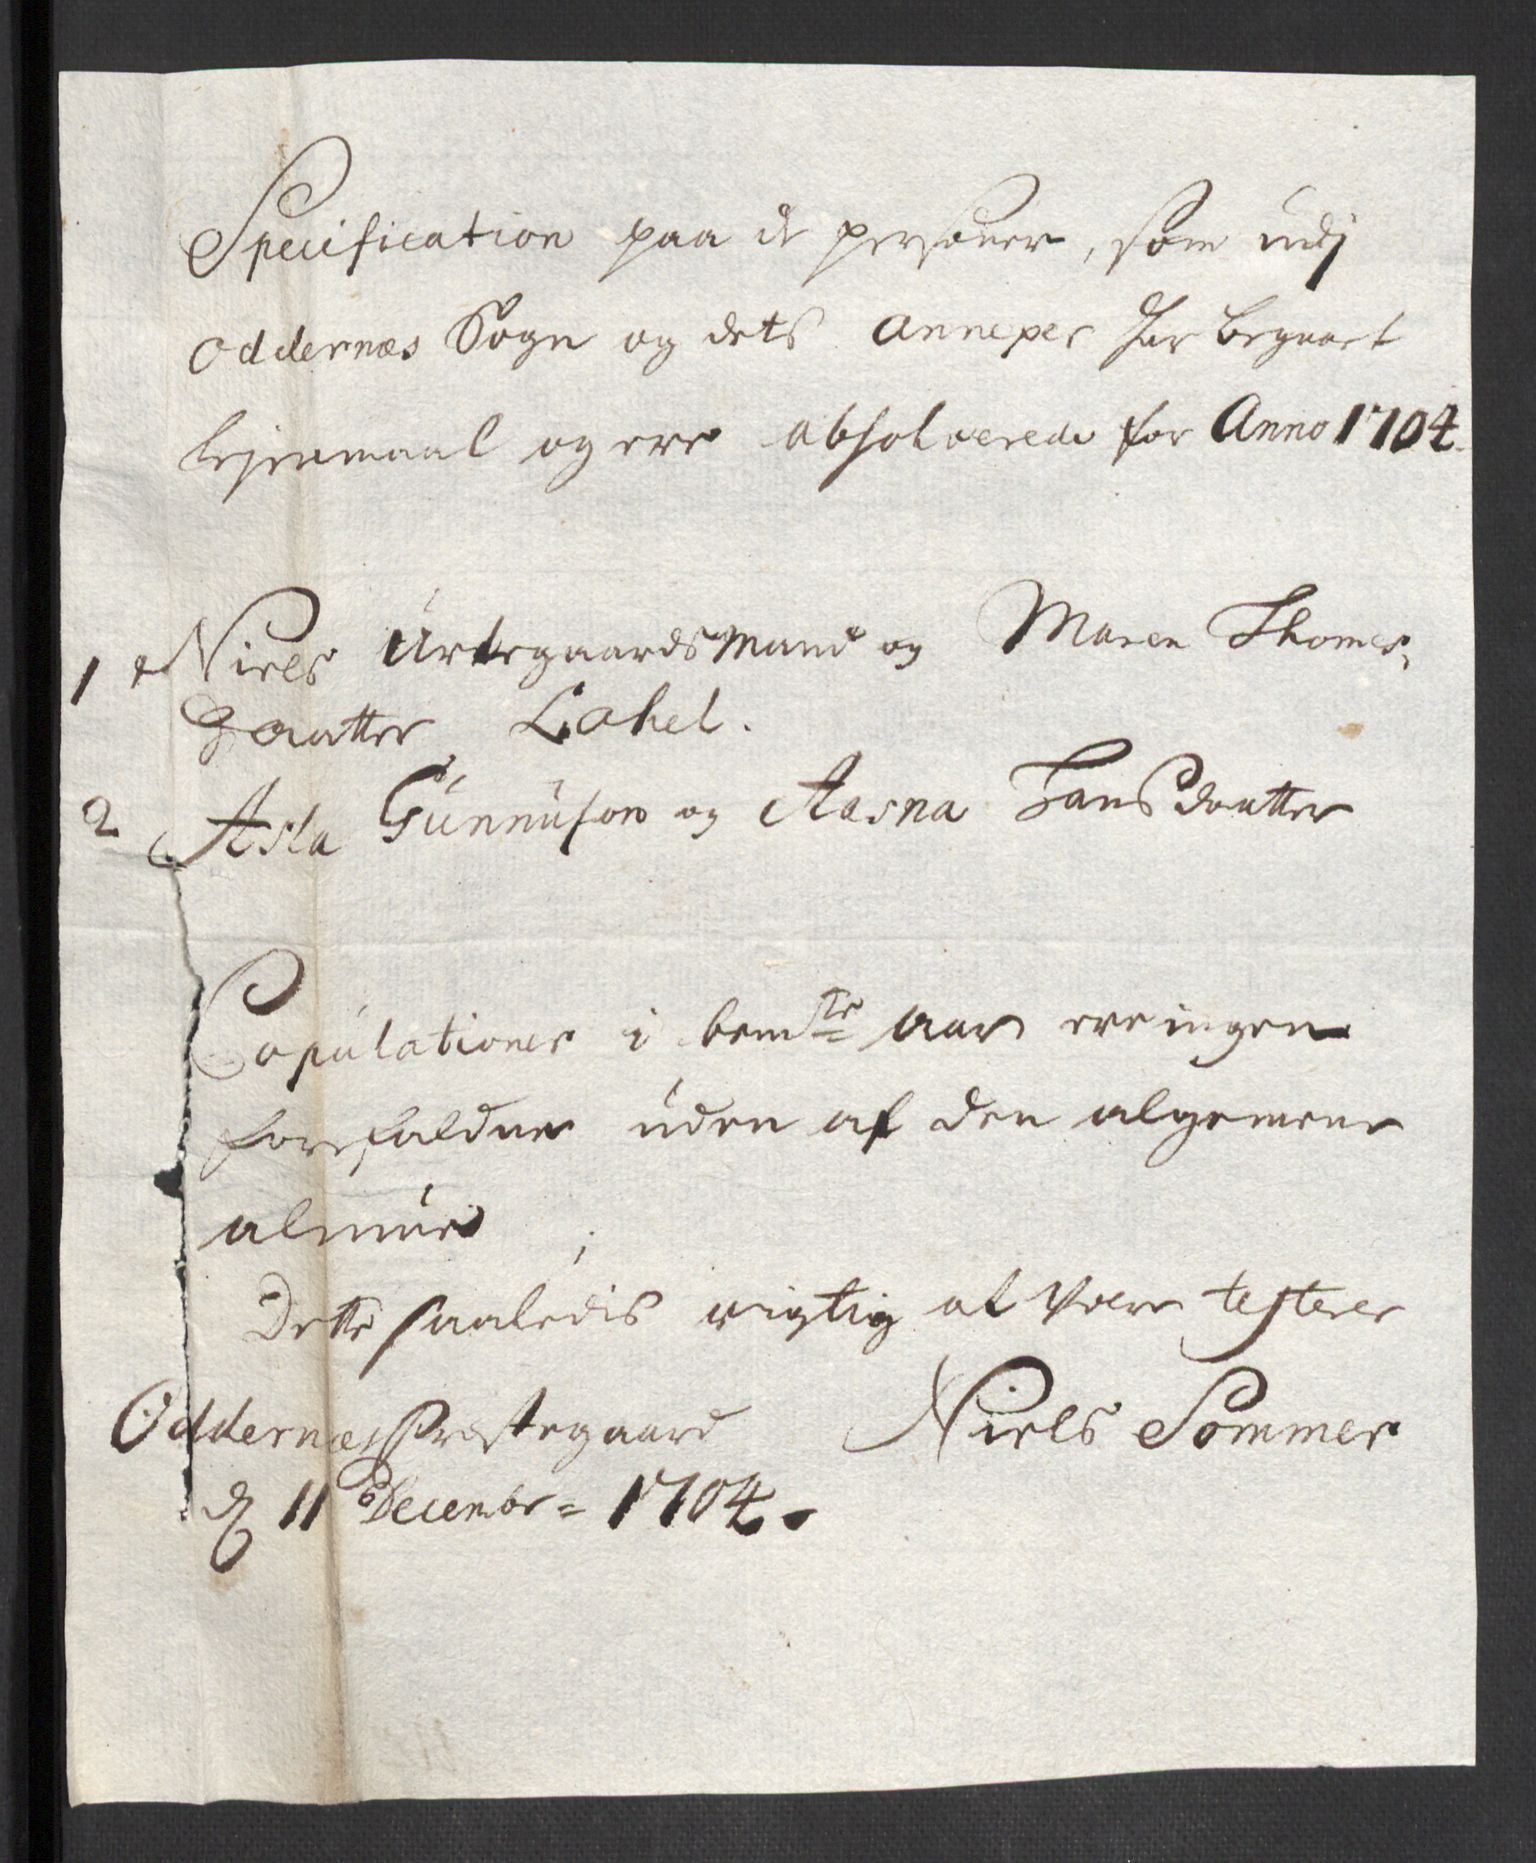 Specification paa de personer, som udj
Oddernæs Sogn og dets annexer har begaaet
lejermaal og ere absolverede for Anno 1704.
1 Niels Urtegaardsmand og Maren Thomes,
Daatter Lahel.
2 Asla Gunnusøn og Aasna HansDaatter
Copulationer i bemte aar ere ingen
forefaldne uden af den algemene
almue
Dette saaledis rigtig at være testerer
Oddernæs Præstegaard Niels Sommer
d 11 Decembr = 1704.